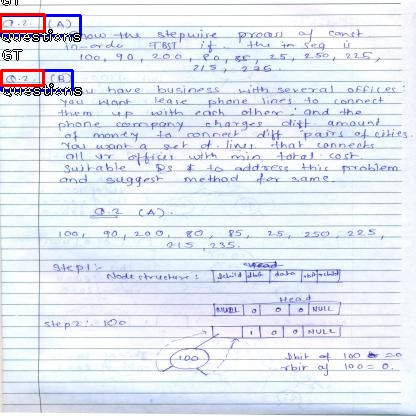 GT
Q.2. (A)
Questions
show the stepwise process of const
in-order TBST if the in seq is
100, 90, 200, 80, 85, 25, 250, 225,
215, 235.
GT
Q.2. (B)
Questions
You have business with several offices:
You want lease phone lines to connect
them up with each other; and the
phone company charges diff amount
of money to connect diff pairs of cities.
You want a set of lines that connects
all yr offices with min total cost.
Suitable DS $ to address this problem
and suggest method for same.
Q.2 (A).
100, 90, 200, 80, 85, 25, 250, 225,
215, 235.
Step 1:-
Node structure: lchild lbit data rbit rchild
Head
NULL 0 0 0 NULL
step 2:- 100
1 0 0 NULL
100
lbit of 100 = 0
rbit of 100 = 0.